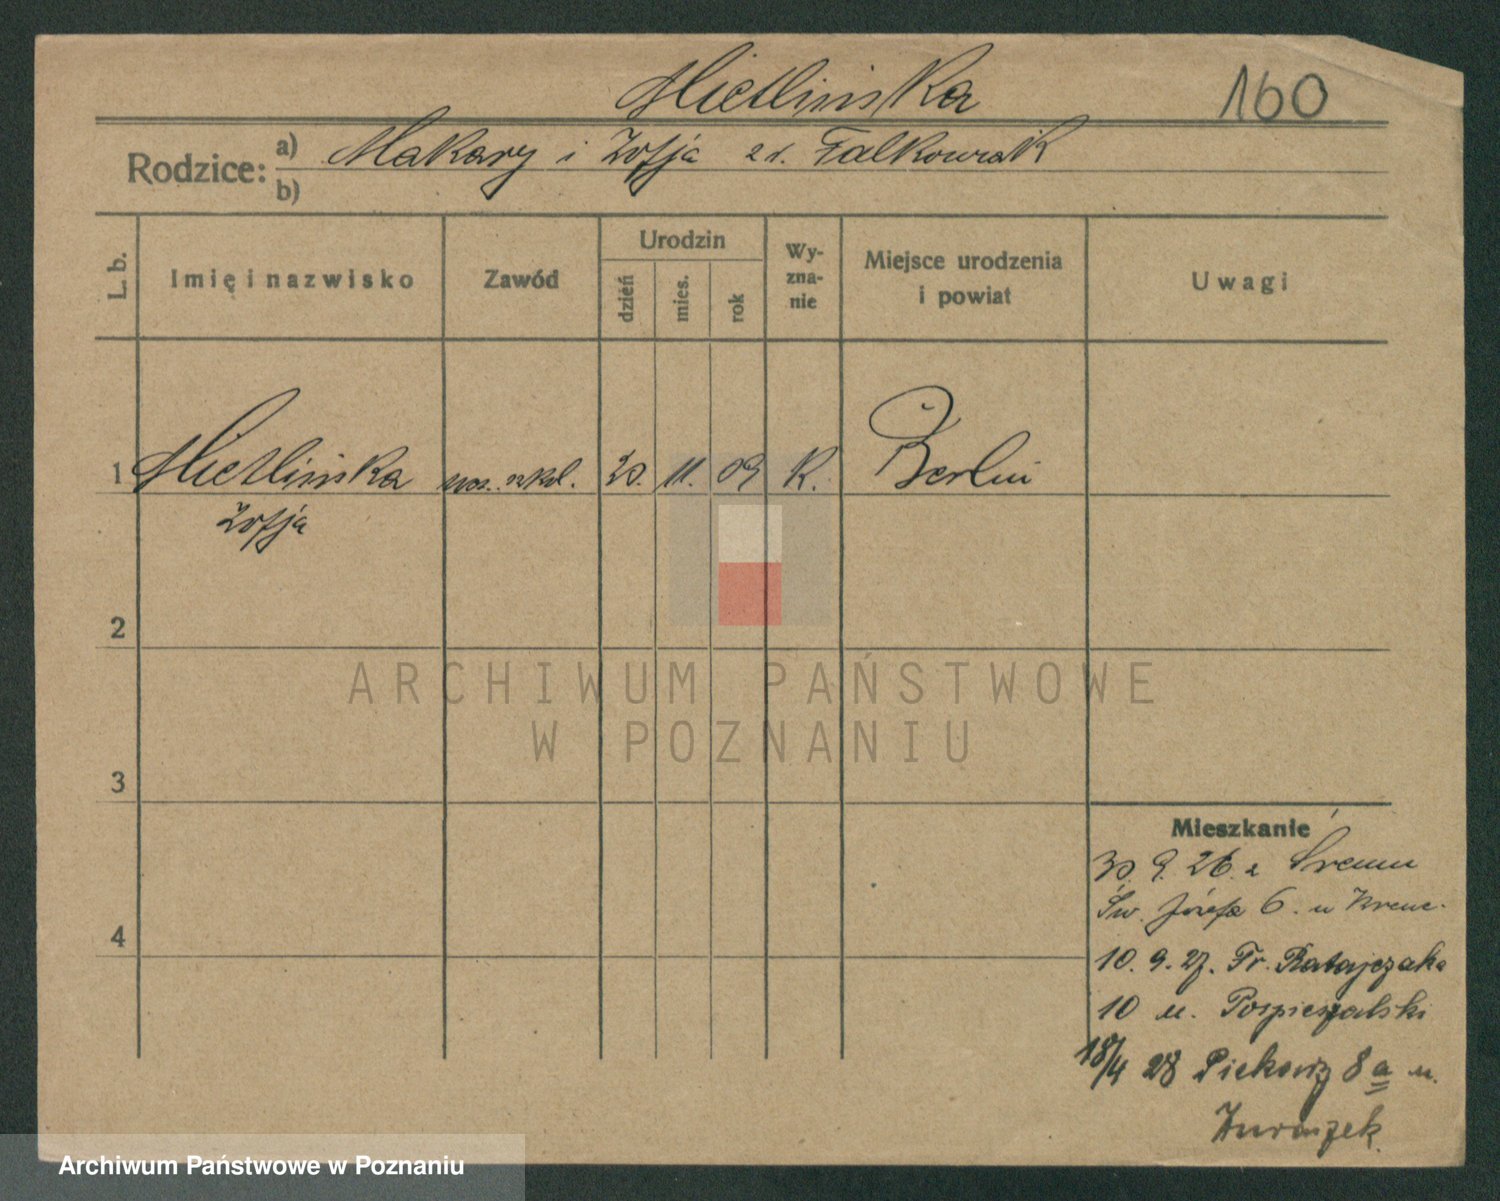 Mietlińska
160
Rodzice: a) Makary i Zofja z d. Falkowiak
b)
L. b.
Imię i nazwisko
Zawód
Urodzin
dzień
mies.
rok
Wy-
zna-
nie
Miejsce urodzenia
i powiat
Uwagi
1 Mietlińska 20. 11. 09 K. Berlin
Zofja
2
ARCHIWUM PAŃSTWOWE
W POZNANIU
3
Mieszkanie
30. 9. 26. z Śremu
Św. Józefa 6. u
4
10. 9. 27. Fr. Ratajczaka
10 u. Pospieszalski
18/4 28 Piekary 8a u.
Archiwum Państwowe w Poznaniu